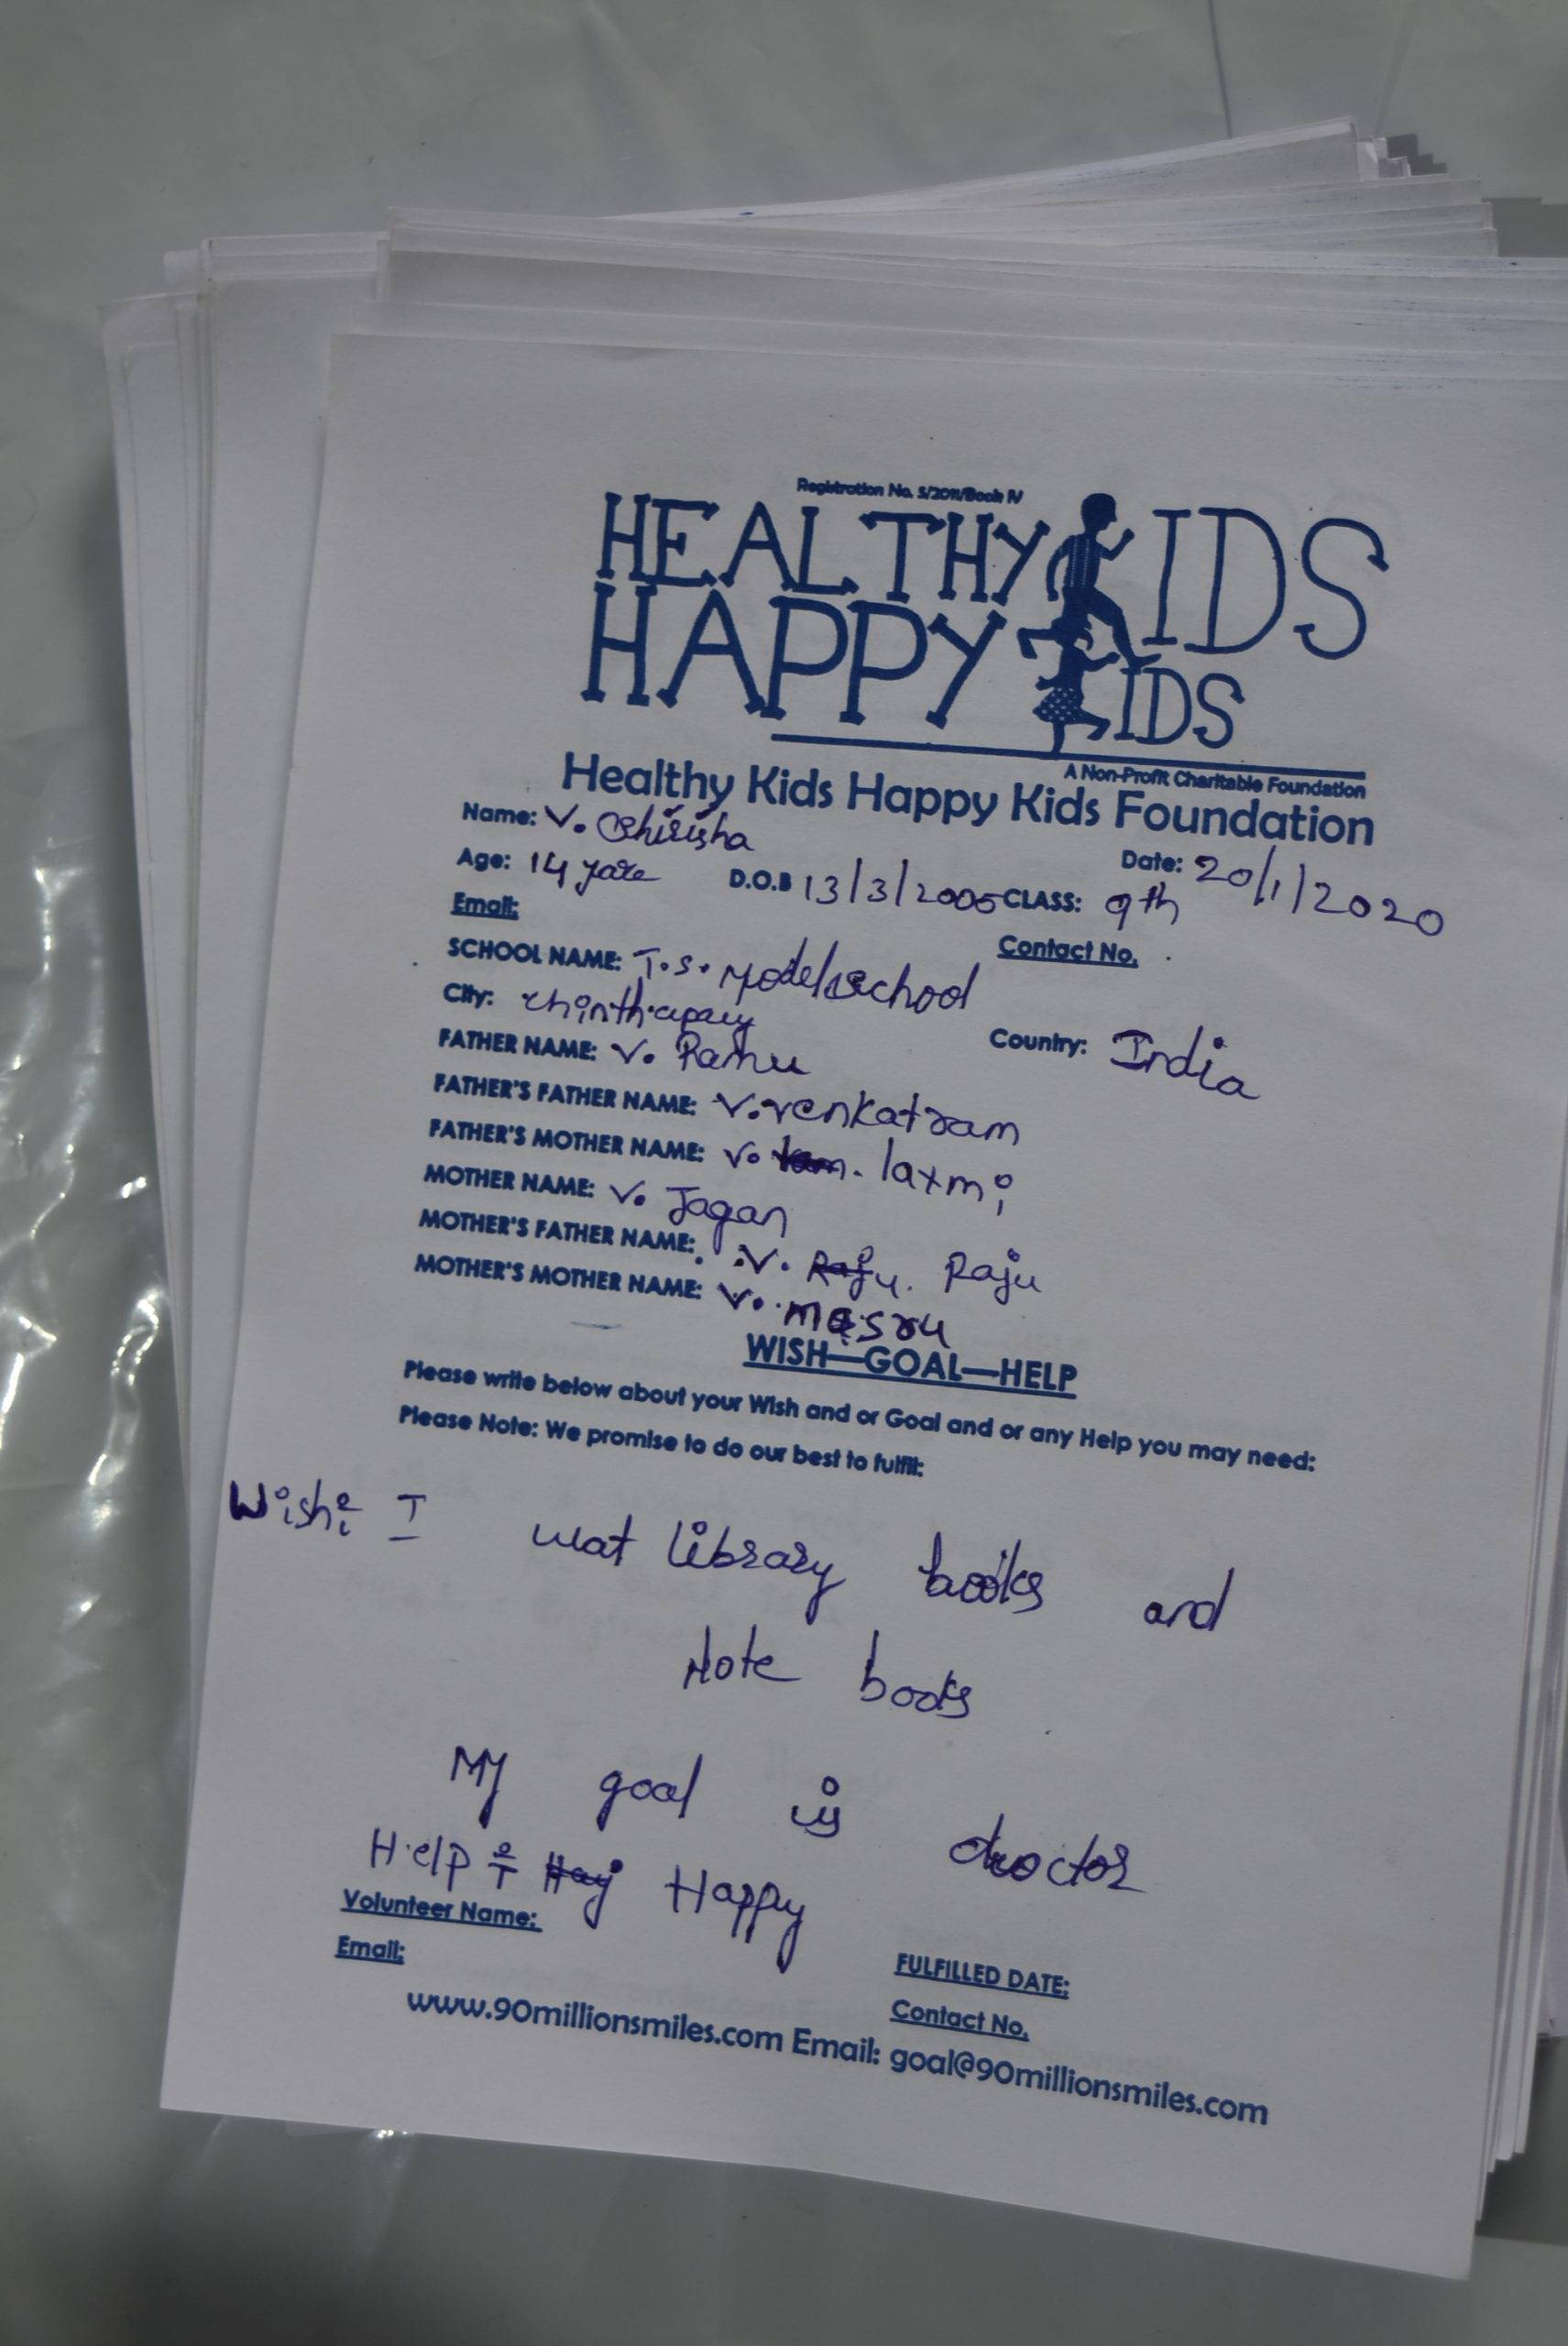 Registration No. 5/2011/Book IV
HEALTHY KIDS
HAPPY KIDS
A Non-Profit Charitable Foundation
Healthy Kids Happy Kids Foundation
Name: V. Shirisha
Date: 20/1/2020
Age: 14 yare D.O.B 13/3/2005 CLASS: 9th
Email:
Contact No.
SCHOOL NAME: T.S. Model school
City: chinthapaly
Country: India
FATHER NAME: V. Ramu
FATHER'S FATHER NAME: V. venkatram
FATHER'S MOTHER NAME: V. laxmi
MOTHER NAME: V. Jagan
MOTHER'S FATHER NAME: V. Raju. Raju
MOTHER'S MOTHER NAME: V. masru
WISH—GOAL—HELP
Please write below about your Wish and or Goal and or any Help you may need:
Please Note: We promise to do our best to fulfil:
Wish: I wat library books and
Note books
My goal is doctor
Help : Hay Happy
Volunteer Name:
FULFILLED DATE:
Email:
Contact No.
www.90millionsmiles.com Email: goal@90millionsmiles.com